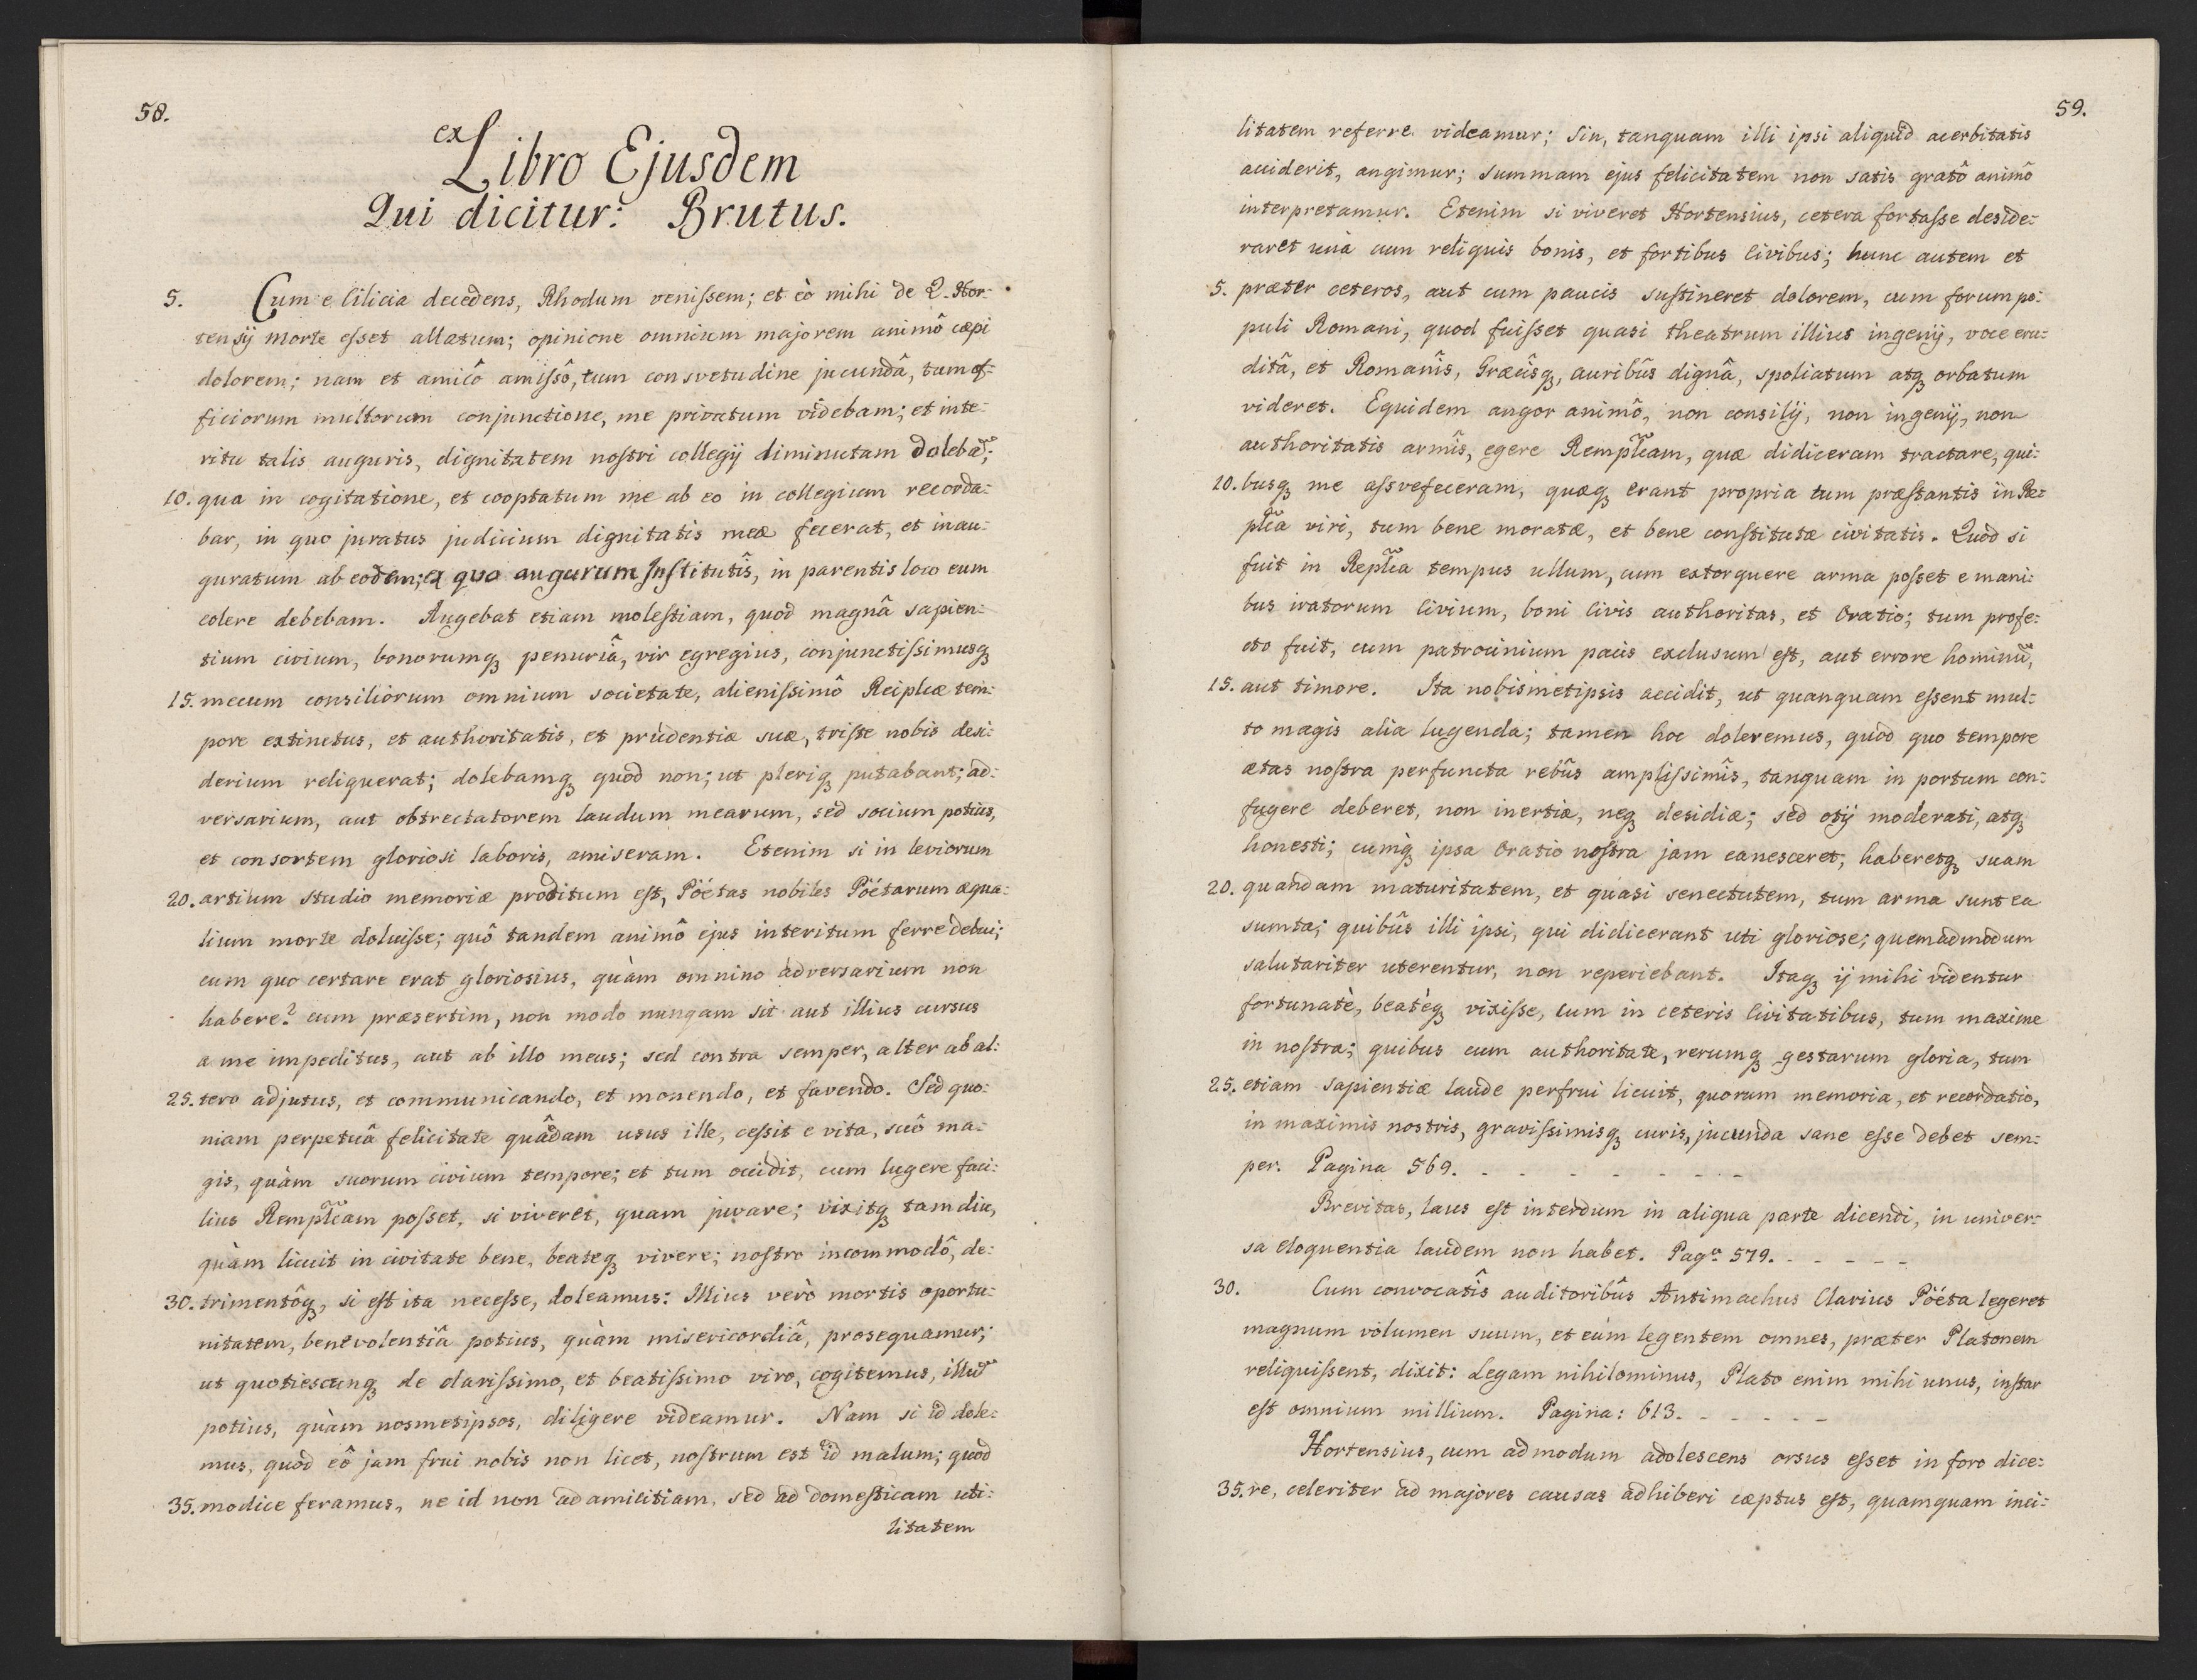 58.
ex Libro Ejusdem
Qui dicitur: Brutus.
5. Cum e Cilicia decedens, Rhodum venissem; et eò mihi de Q. Hor:
tensij morte esset allatum; opinione omnium majorem animô cœpi
dolorem; nam et amicô amissô, tum consvetudine jucundâ, tum of:
ficiorum multorum conjunctione, me privatum videbam; et inte:
ritu talis auguris, dignitatem nostri collegij diminutam dolebã;
10. qua in cogitatione, et cooptatum me ab eo in collegium recorda:
bar, in quo juratus judicium dignitatis meæ fecerat, et inau:
guratum ab eodem; ex quo augurum Institutîs, in parentis loco eum
colere debebam. Augebat etiam molestiam, quod magnâ sapien:
tium civium, bonorumq3 penuriâ, vir egregius, conjunctissimusq3
15. mecum consiliorum omnium societate, alienissimô Reiplicæ tem:
pore extinctus, et authoritatis, et prudentiæ suæ, triste nobis desi:
derium reliquerat; dolebamq3 quod non; ut pleriq3 putabant; ad:
versarium, aut obtrectatorem laudum mearum, sed socium potius,
et consortem gloriosi laboris, amiseram. Etenim si in leviorum
20. artium studio memoriæ proditum est, Pöétas nobiles Pöétarum æqua:
lium morte doluisse; quô tandem animô ejus interitum ferre debui;
cum quo certare erat gloriosius, quàm omnino adversarium non
habere? cum præsertim, non modo nunqam sit aut illius cursus
a me impeditus, aut ab illo meus; sed contra semper, alter ab al:
25. tero adjutus, et communicando, et monendo, et favendo. Sed quo:
niam perpetuâ felicitate quâdam usus ille, cessit e vita, suô ma:
gis, quàm suorum civium tempore; et tum occidit, cum lugere faci:
lius Remplicam posset, si viveret, quam juvare; vixitq3 tam diu,
quàm licuit in civitate bene, beateq3 vivere; nostro incommodô, de:
30. trimentôq3, si est ita necesse, doleamus: Illius verò mortis oportu:
nitatem, benevolentiâ potius, quàm misericordiâ, prosequamur;
ut quotiescunq3 de clarissimo, et beatissimo viro, cogitemus, illud
potius, quàm nosmetipsos, diligere videamur. Nam si id dole:
mus, quod eô jam frui nobis non licet, nostrum est id malum; quod
35. modice feramus, ne id non ad amicitiam, sed ad domesticam uti:
litatem
59.
litatem referre videamur; Sin, tanquam illi ipsi aliquid acerbitatis
acciderit, angimur; summam ejus felicitatem non satis gratô animô
interpretamur. Etenim si viveret Hortensius, cetera fortasse deside:
raret unà cum reliquis bonis, et fortibus Civibus; hunc autem et
5. præter ceteros, aut cum paucis sustineret dolorem, cum forum po:
puli Romani, quod fuisset quasi theatrum illius ingenij, voce eru:
ditâ, et Romanîs, Græcîsq3, auribûs dignâ, spoliatum atq3 orbatum
videret. Equidem angor animô, non consilij, non ingenij, non
authoritatis armîs, egere Remplicam, quæ didiceram tractare, qui:
10. busq3 me assvefeceram, quæq3 erant propria tum præstantis in Re:
plica viri, tum bene moratæ, et bene constitutæ civitatis. Quod si
fuit in Replica tempus ullum, cum extorquere arma posset e mani:
bus iratorum Civium, boni Civis authoritas, et Oratio; tum profe:
cto fuit, cum patrocinium pacis exclusum est, aut errore hominũ,
15. aut timore. Ita nobismetipsis accidit, ut quanquam essent mul:
to magis alia lugenda; tamen hoc doleremus, quòd quo tempore
ætas nostra perfuncta rebûs amplissimîs, tanquam in portum con:
fugere deberet, non inertiæ, neq3 desidiæ; sed otij moderati, atq3
honesti; cumq3 ipsa Oratio nostra jam canesceret, haberetq3 suam
20. quandam maturitatem, et quasi senectutem, tum arma sunt ea
sumta; quibûs illi ipsi, qui didicerant uti gloriose; quemadmodum
salutariter uterentur, non reperiebant. Itaq3 ij mihi videntur
fortunatè, beatèq3 vixisse, cum in ceteris Civitatibus, tum maxime
in nostra; quibus cum authoritate, rerumq3 gestarum gloria, tum
25. etiam sapientiæ laude perfrui licuit, quorum memoria, et recordatio,
in maximis nostris, gravissimisq3 curis, jucunda sane esse debet sem:
per. Pagina 569. - - - - - - -
Brevitas, laus est interdum in aliqua parte dicendi, in univer:
sa eloquentia laudem non habet. Pagª 579. - - - - -
30. Cum convocatîs auditoribûs Antimachus Clarius Pöéta legeret
magnum volumen suum, et eum legentem omnes, præter Platonem
reliquissent, dixit: Legam nihilominus, Plato enim mihi unus, instar
est omnium millium. Pagina: 613. - - - - -
Hortensius, cum admodum adolescens orsus esset in foro dice:
35. re, celeriter ad majores causas adhiberi cæptus est, quamquam inci: